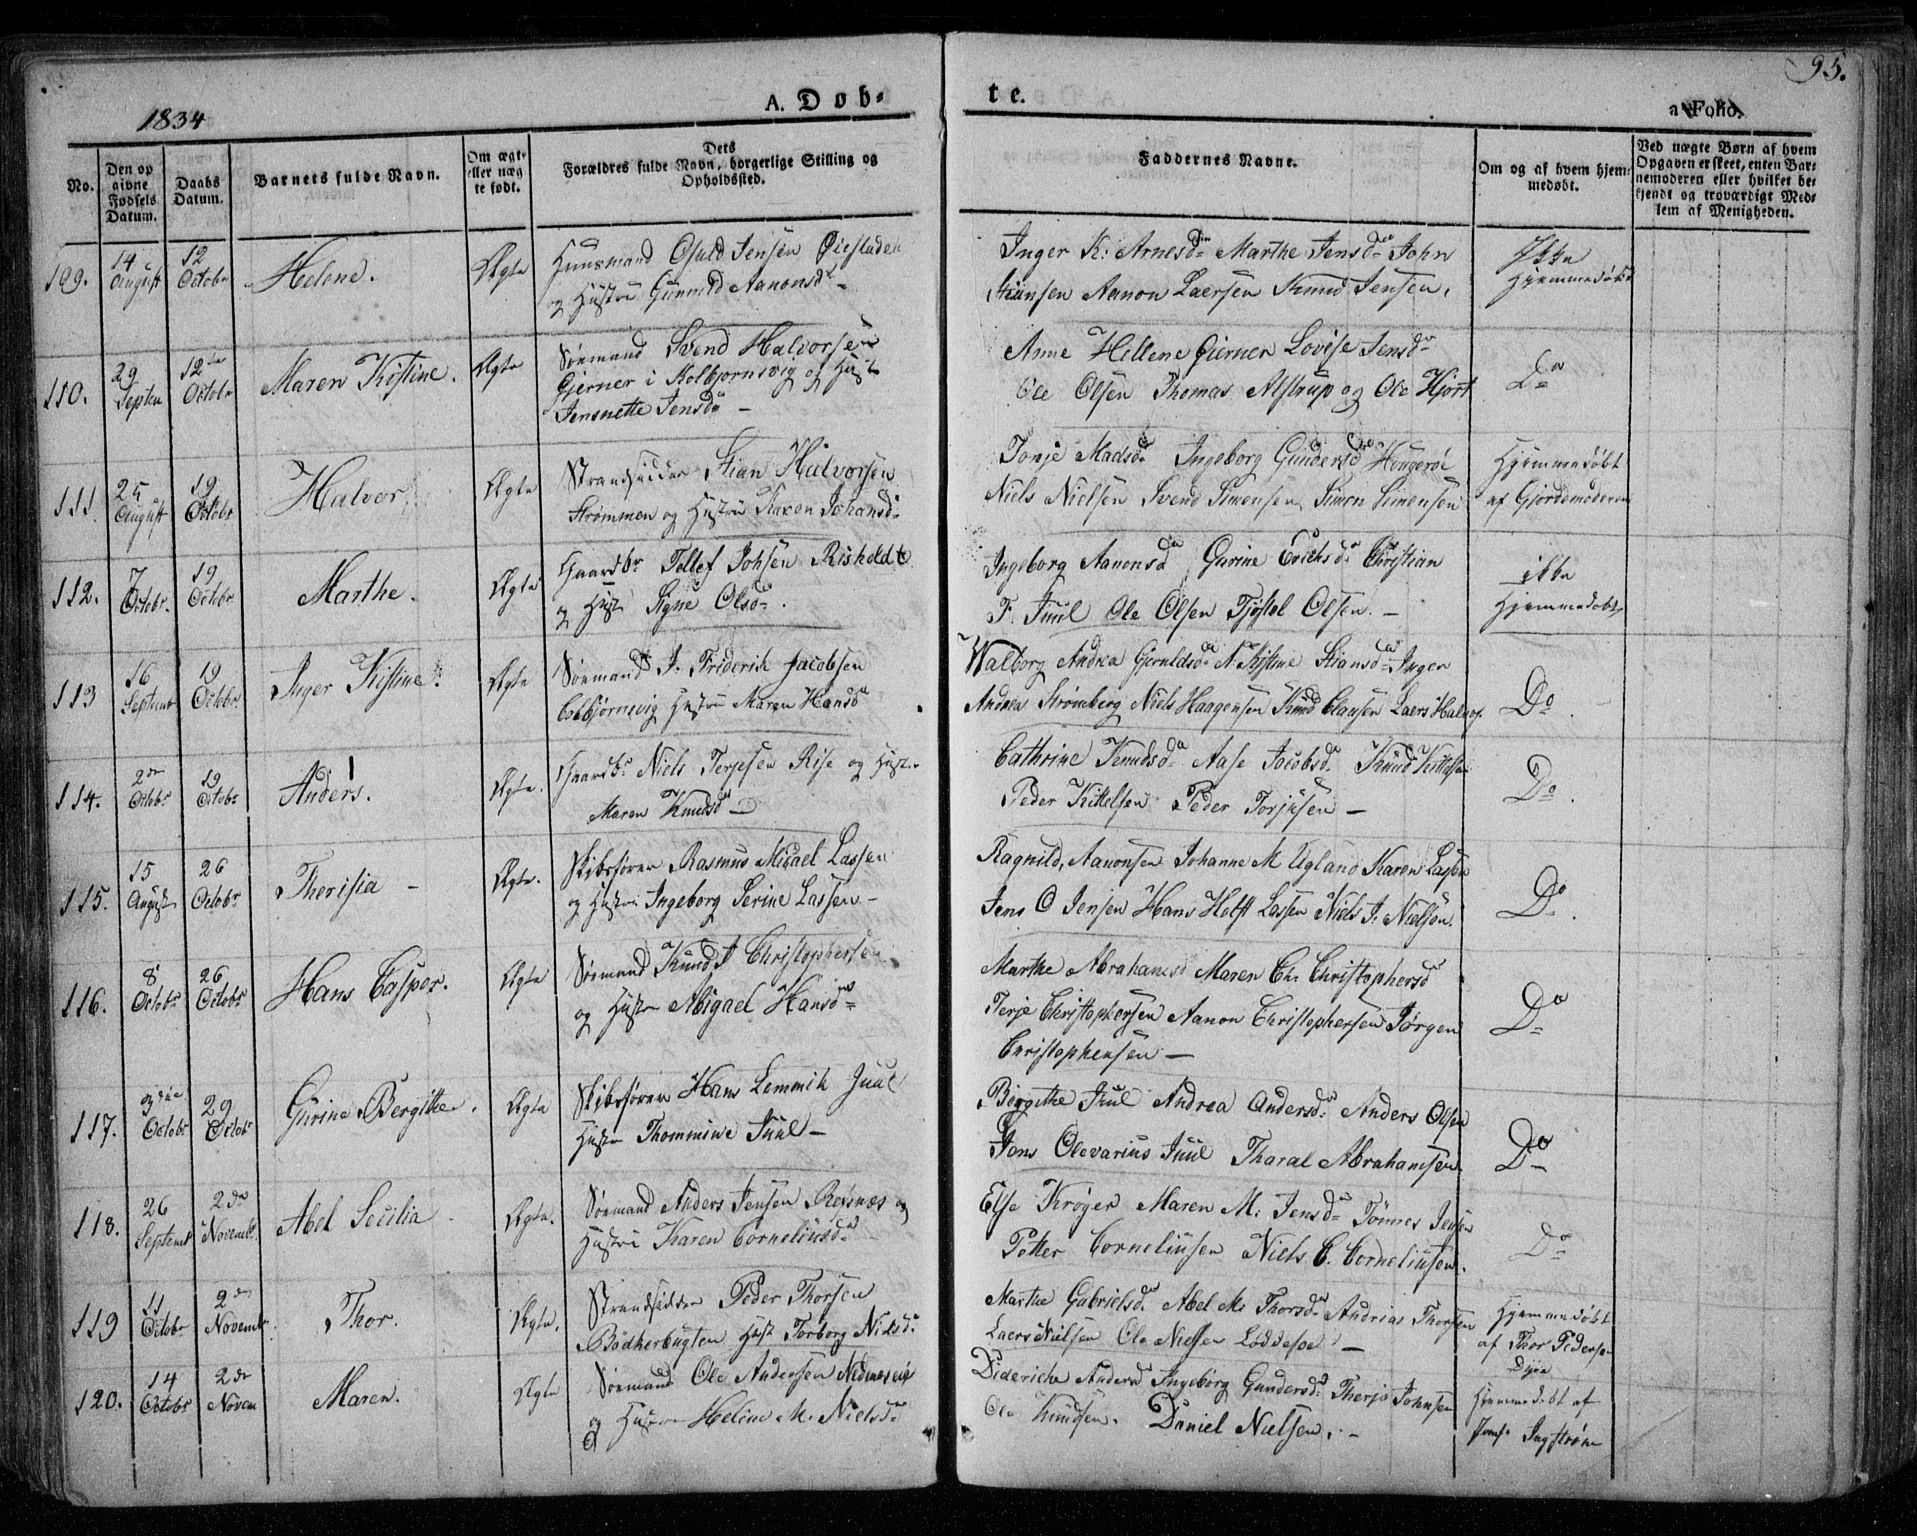 95.
1834
A. Døb-
te.
a Folio.
No.
Den op
givne
Fødsels
Datum.
Daabs
Datum.
Barnets fulde Navn.
Om ægt-
eller næg
te født.
Dets
Forældres fulde Navn, borgerlige Stilling og
Opholdssted.
Faddernes Navne.
Om og af hvem hjem-
medøbt.
Ved nægte Børn af hvem
Opgaven er skeet, enten Bar-
nemoderen eller hvilket be-
kjendt og troværdigt Med-
lem af Menigheden.
109.
14
August
12
Octobr
Helene.
Ægte
Huusmand Osuld Jensen Øiestaden
og Hustru Gunnild Aanonsd.
Inger K: Arnesd. Marthe Jensd. John
Aanon Laersen Knud Jensen.
Ikke
Hjemmedøbt
110.
29
Septem
12te
Octobr
Maren Kistine.
Ægte
Sømand Svend Halvorsen
Gjerner i Kolbjørnsvig og Hust
Jensnette Jensd
Anne Hellene Gierner Lovise Jensd
Ole Olsen Thomas Alstrup og Ole Hjort
Do
111
25
August
19
Octobr
Halvor
Ægte
Strandsidder Stian Halvorsen
Strømmen og Hustru Karen Johansd.
Tonje Madsd. Ingeborg Gundersd. Hengerøe
Niels Nielsen Svend Simensen Simon Simensen
Hjemmedøbt
af Gjordemoderen
112.
7
Octobr.
19
Octobr
Marthe.
Ægte
Gaardbr Tellef Johsen Risholdt
og Hust. Signe Olsd.
Ingeborg Aanonsd Gurine Erichsd. Christian
F. Juul Ole Olsen Tjøstol Olsen.
ikke
Hjemmedøbt
113
16
Septemb
19
Octobr
Inger Kistine.
Ægte
Sømand J. Friderik Jacobsen
Colbjørnsvig Hustru Maren Hansd
Walborg Andrea Gjeruldsd. A. Kistine Stiansd. Inger
Andrea Strømberg Niels Haagensen Knud Clausen Laers Halvors
Do
114.
2de
Octobr
19
Octobr
Anders.
Ægte.
Gaardbr. Niels Terjesen Rise og Hust.
Maren Knudsd
Cathrine Knudsd. Aase Jacobsd. Knud Kittelsen
Peder Kittelsen Peder Torjusen
Do.
115.
15
August
26
Octobr
Therisia
Ægte.
Skibsfører Rasmus Micael Lassen
og Hustru Ingeborg Serine Lassen
Ragnild, Aanonsen Johanne M Ugland Karen Lassen
Jens O Jensen Hans Lassen Niels J. Nielsen.
Do.
116.
8
Octobr
26
Octobr
Hans Casper.
Ægte
Sømand Knud J Christophersen
og Hustr Abigael Hansd
Marthe Abrahamsd Maren Chr Christophersd
Terje Christophersen Aanon Christophersen Jørgen
Christophersen
Do
117.
3die
Octobr
29
Octobr
Gurine Bergithe.
Ægte
Skibsfører Hans Lemmik Juul
Hustr Thommine Juul
Birgithe Juul Andrea Andersd: Anders Olsen
Jens Olevarius Juul Tharal Abrahamsen
Do
118.
26
Septemb
2de
Novembr.
Abel Secilia
Ægte.
Sømand Anders Jensen Revsnæs og
Hustru Karen Corneliusd.
Else Krøger Maren M: Jensd. Tönnes Jensen
Petter Corneliusen Niels C. Corneliusen.
Do
119
11
Octobr
2de
Novembr.
Thor.
Ægte.
Strandsidder Peder Thorsen
Bödkerbugten Hust. Torborg Nielsd.
Marthe Gabrielsd. Abel M: Thorsd. Andrias Thorsen
Laers Nielsen Ole Nielsen Loddesøe
Hjemmedøbt
af Thor Peders
120.
14
Octobr
2de
Novem
Maren.
Ægte
Sømand Ole Andersen Nednæs
og Hustru Heline M. Nielsd
Diderich Andersd Ingeborg Gundersd. Therjo Johnsen
Ole Knudsen. Daniel Nielsen.
Hjemmedøbt af
Ingstrøm